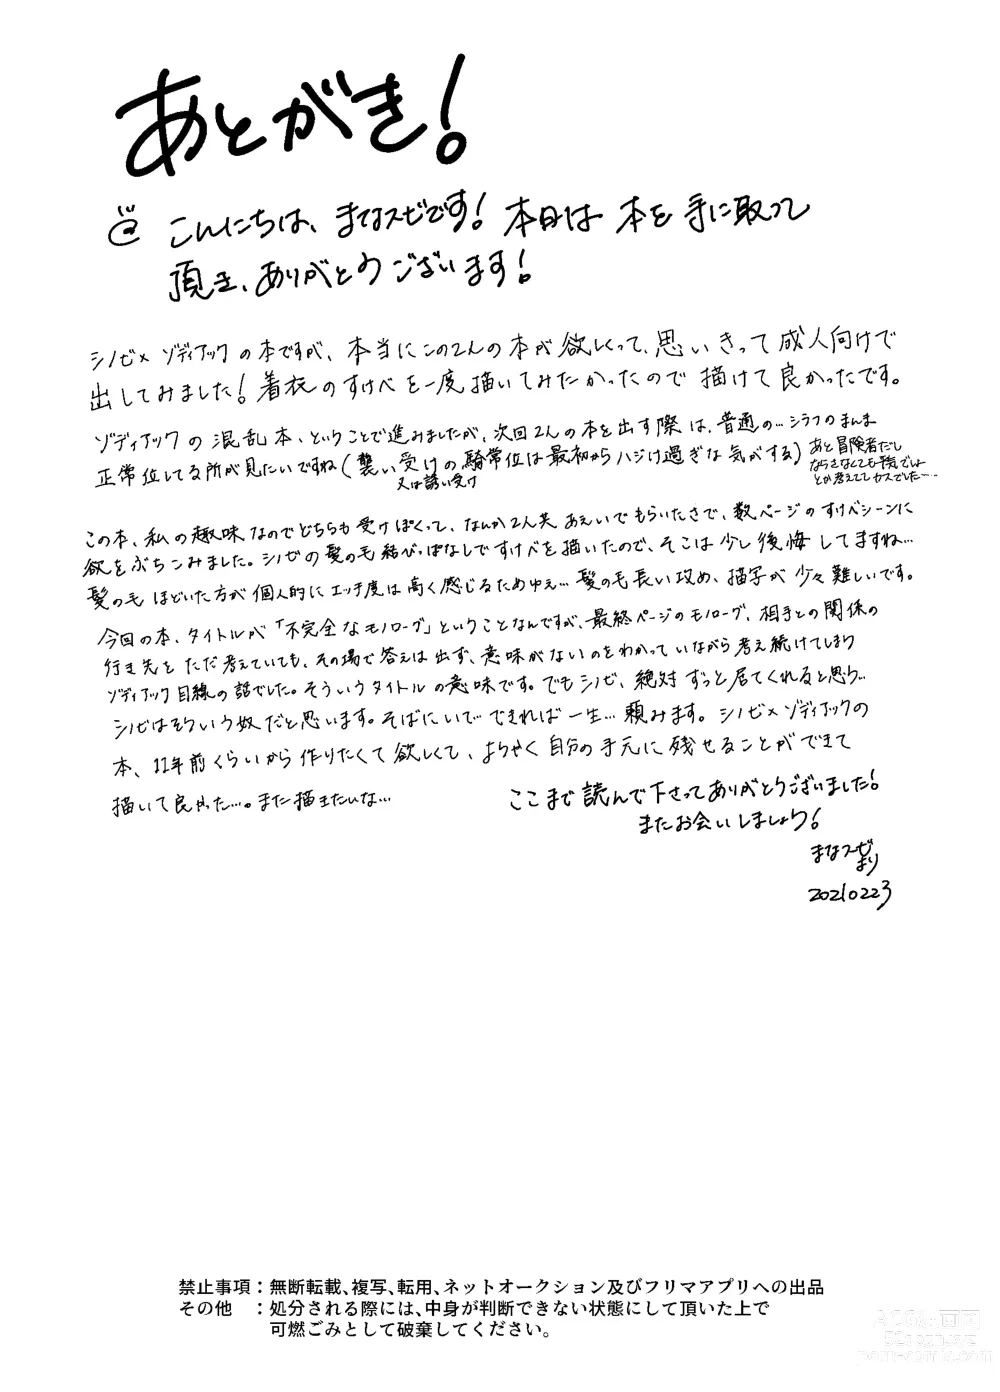 あとがき!
こんにちは、まなスゼです! 本日は 本を 手に取って
頂き、ありがとうございます!
シノゼ×ゾディアックの本ですが、本当にこの2人の本が欲しくって、思いきって成人向けで
出してみました! 着衣のすけべを一度描いてみたかったので描けて良かったです。
ゾディアックの混乱本、ということで進みましたが、次回2人の本を出す際は、普通の…シラフのまんま
正常位してる所が見たいですね(襲い受けの騎常位は最初からハジけ過ぎな気がする)
又は誘い受け
あと冒険者だし
ならさなくても平気でしょ
とか考えててカスでした…
この本、私の趣味なのでどちらも受けぽくって、なんか2人共あえいでもらいたさで、数ページのすけべシーンに
欲をぶちこみました。シノゼの髪の毛結びっぱなしですけべを描いたので、そこは少し後悔してますね…
髪の毛ほどいた方が個人的にエッチ度は高く感じるためゆえ…髪の毛長い攻め、描写が少々難しいです。
今回の本、タイトルが「不完全なモノローグ」ということなんですが、最終ページのモノローグ、相手との関係の
行き先をただ考えていても、その場で答えは出ず、意味がないのをわかっていながら考え続けてしまう
ゾディアック目線の話でした。そういうタイトルの意味です。でもシノゼ、絶対ずっと居てくれると思う…
シノゼはそういう奴だと思います。そばにいて…できれば一生…頼みます。シノゼ×ゾディアックの
本、11年前くらいから作りたくて欲しくて、ようやく自分の手元に残せることができて
描いて良かった…。また描きたいな…
ここまで読んで下さってありがとうございました!
またお会いしましょう!
まなスゼ
より
20210223
禁止事項:無断転載、複写、転用、ネットオークション及びフリマアプリへの出品
その他 :処分される際には、中身が判断できない状態にして頂いた上で
可燃ごみとして破棄してください。